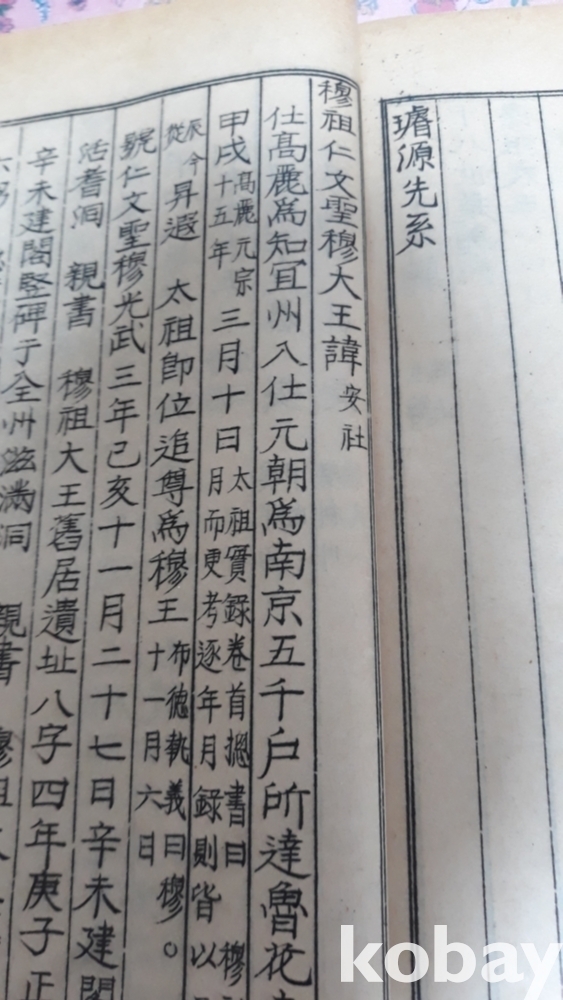 璿源先系
穆祖仁文聖穆大王諱安社
仕高麗爲知宜州入仕元朝爲南京五千戶所達魯花
甲戌高麗元宗十五年三月十日太祖實錄卷首摠書曰 穆月而更考逐年月錄則皆以
辰今從昇遐 太祖卽位追尊爲穆王布德執義曰穆。十一月六日
號仁文聖穆光武三年己亥十一月二十七日辛未建閣
活耆洞 親書 穆祖大王舊居遺址八字四年庚子正
辛未建閣竪碑于全州滋滿洞 親書 穆祖
kobay